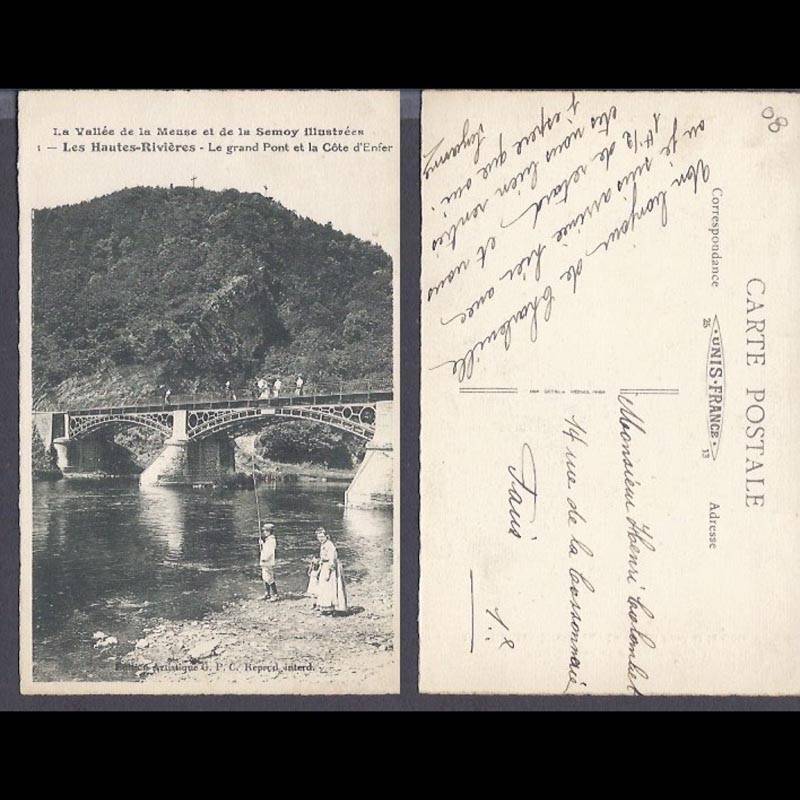 La Vallée de la Meuse et de la Semoy illustrées
1 - Les Hautes-Rivières - Le grand Pont et la Côte d'Enfer
Edition Artistique G. P. C. Reprod. interd.
08
CARTE POSTALE
Correspondance
25 UNIS-FRANCE 13
Adresse
Mon bonjour de Charleville
ou je suis arrivée hier avec
1 H 1/2 de retard et vous
êtes vous bien rentrés
j'espère que oui.
Suzanne
Monsieur Henri Colombet
14 rue de la Cossonnerie
Paris
1.e